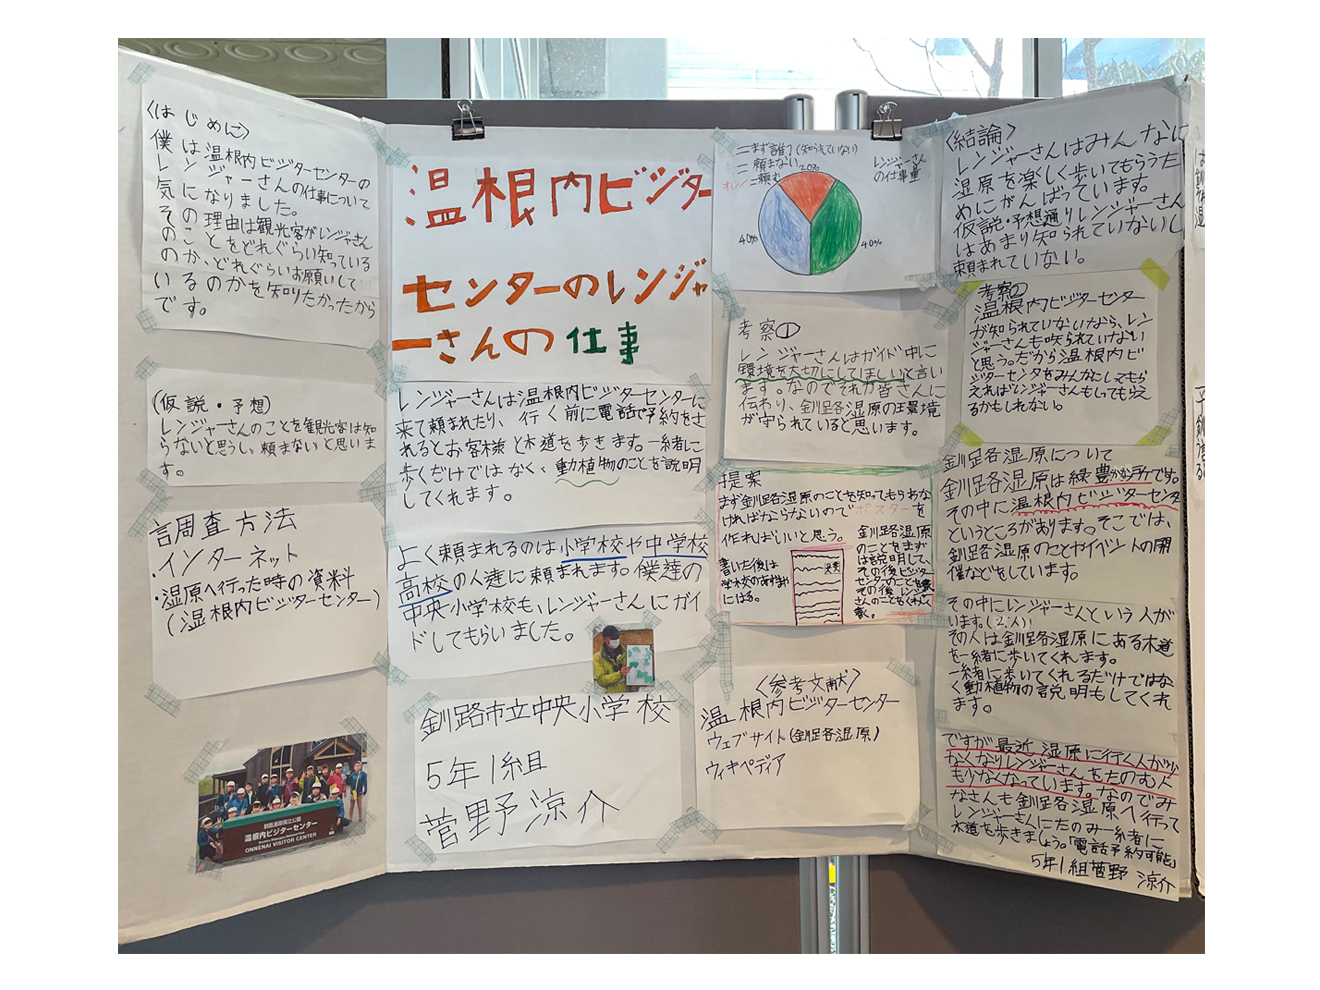 〈はじめに〉
僕は温根内ビジターセンターの
レンジャーさんの仕事について
気になりました。
その理由は観光客がレンジャさん
のことをどれぐらい知っている
のか、どれぐらいお願いして
いるのかを知りたかったから
です。
(仮説・予想)
レンジャーさんのことを観光客は知
らないと思うし、頼まないと思いま
す。
調査方法
・インターネット
・湿原へ行った時の資料
(温根内ビジターセンター)
釧路湿原国立公園
温根内ビジターセンター
ONNENAI VISITOR CENTER
温根内ビジター
センターのレンジャ
ーさんの仕事
レンジャーさんは温根内ビジターセンターに
来て頼まれたり、行く前に電話で予約をさ
れるとお客様と木道を歩きます。一緒に
歩くだけではなく、動植物のことを説明
してくれます。
よく頼まれるのは小学校や中学校
高校の人達に頼まれます。僕達の
中央小学校も、レンジャーさんにガイ
ドしてもらいました。
釧路市立中央小学校
5年1組
菅野涼介
ニまず誰?(知られていない)
ニ頼まない
オレンジニ頼む
レンジャーさん
の仕事量
20%
40%
40%
考察①
レンジャーさんはガイド中に
環境を大切にしてほしいと言い
ます。なのでそれが皆さんに
伝わり、釧路湿原の環境
が守られていると思います。
提案
まず釧路湿原のことを知ってもらわな
ければならないのでポスターを
作ればいいと思う。
書いた後は
学校のろうかや
にはる。
釧路湿原
のことをまず
は説明して、
その後ビジター
センターのことを書
その後レンジャー
さんのこともくわしく
書く。
〈参考文献〉
温根内ビジターセンター
ウェブサイト(釧路湿原)
ウィキペディア
〈結論〉
レンジャーさんはみんなに
湿原を楽しく歩いてもらうた
めにがんばっています。
仮説・予想通りレンジャーさん
はあまり知られていないし
頼まれていない。
考察②
温根内ビジターセンター
が知られていないなら、レン
ジャーさんも知られていない
と思う。だから温根内ビ
ジターセンタをみんかにしてもら
えればレンジャーさんもしってもらえ
るかもしれない。
釧路湿原について
釧路湿原は緑豊かな所です。
その中に温根内ビジターセンタ
というところがあります。そこでは、
釧路湿原のことやイベントの開
催などをしています。
その中にレンジャーさんという人が
います。(2人)
その人は釧路湿原にある木道
を一緒に歩いてくれます。
一緒に歩いてくれるだけではな
く動植物の説明もしてくれ
ます。
ですが最近湿原に行く人が少
なくなりレンジャーさんをたのむ人
も少なくなっています。なのでみ
なさんも釧路湿原へ行って
レンジャーさんにたのみ一緒に
木道を歩きましょう。「電話予約可能」
5年1組菅野 涼介